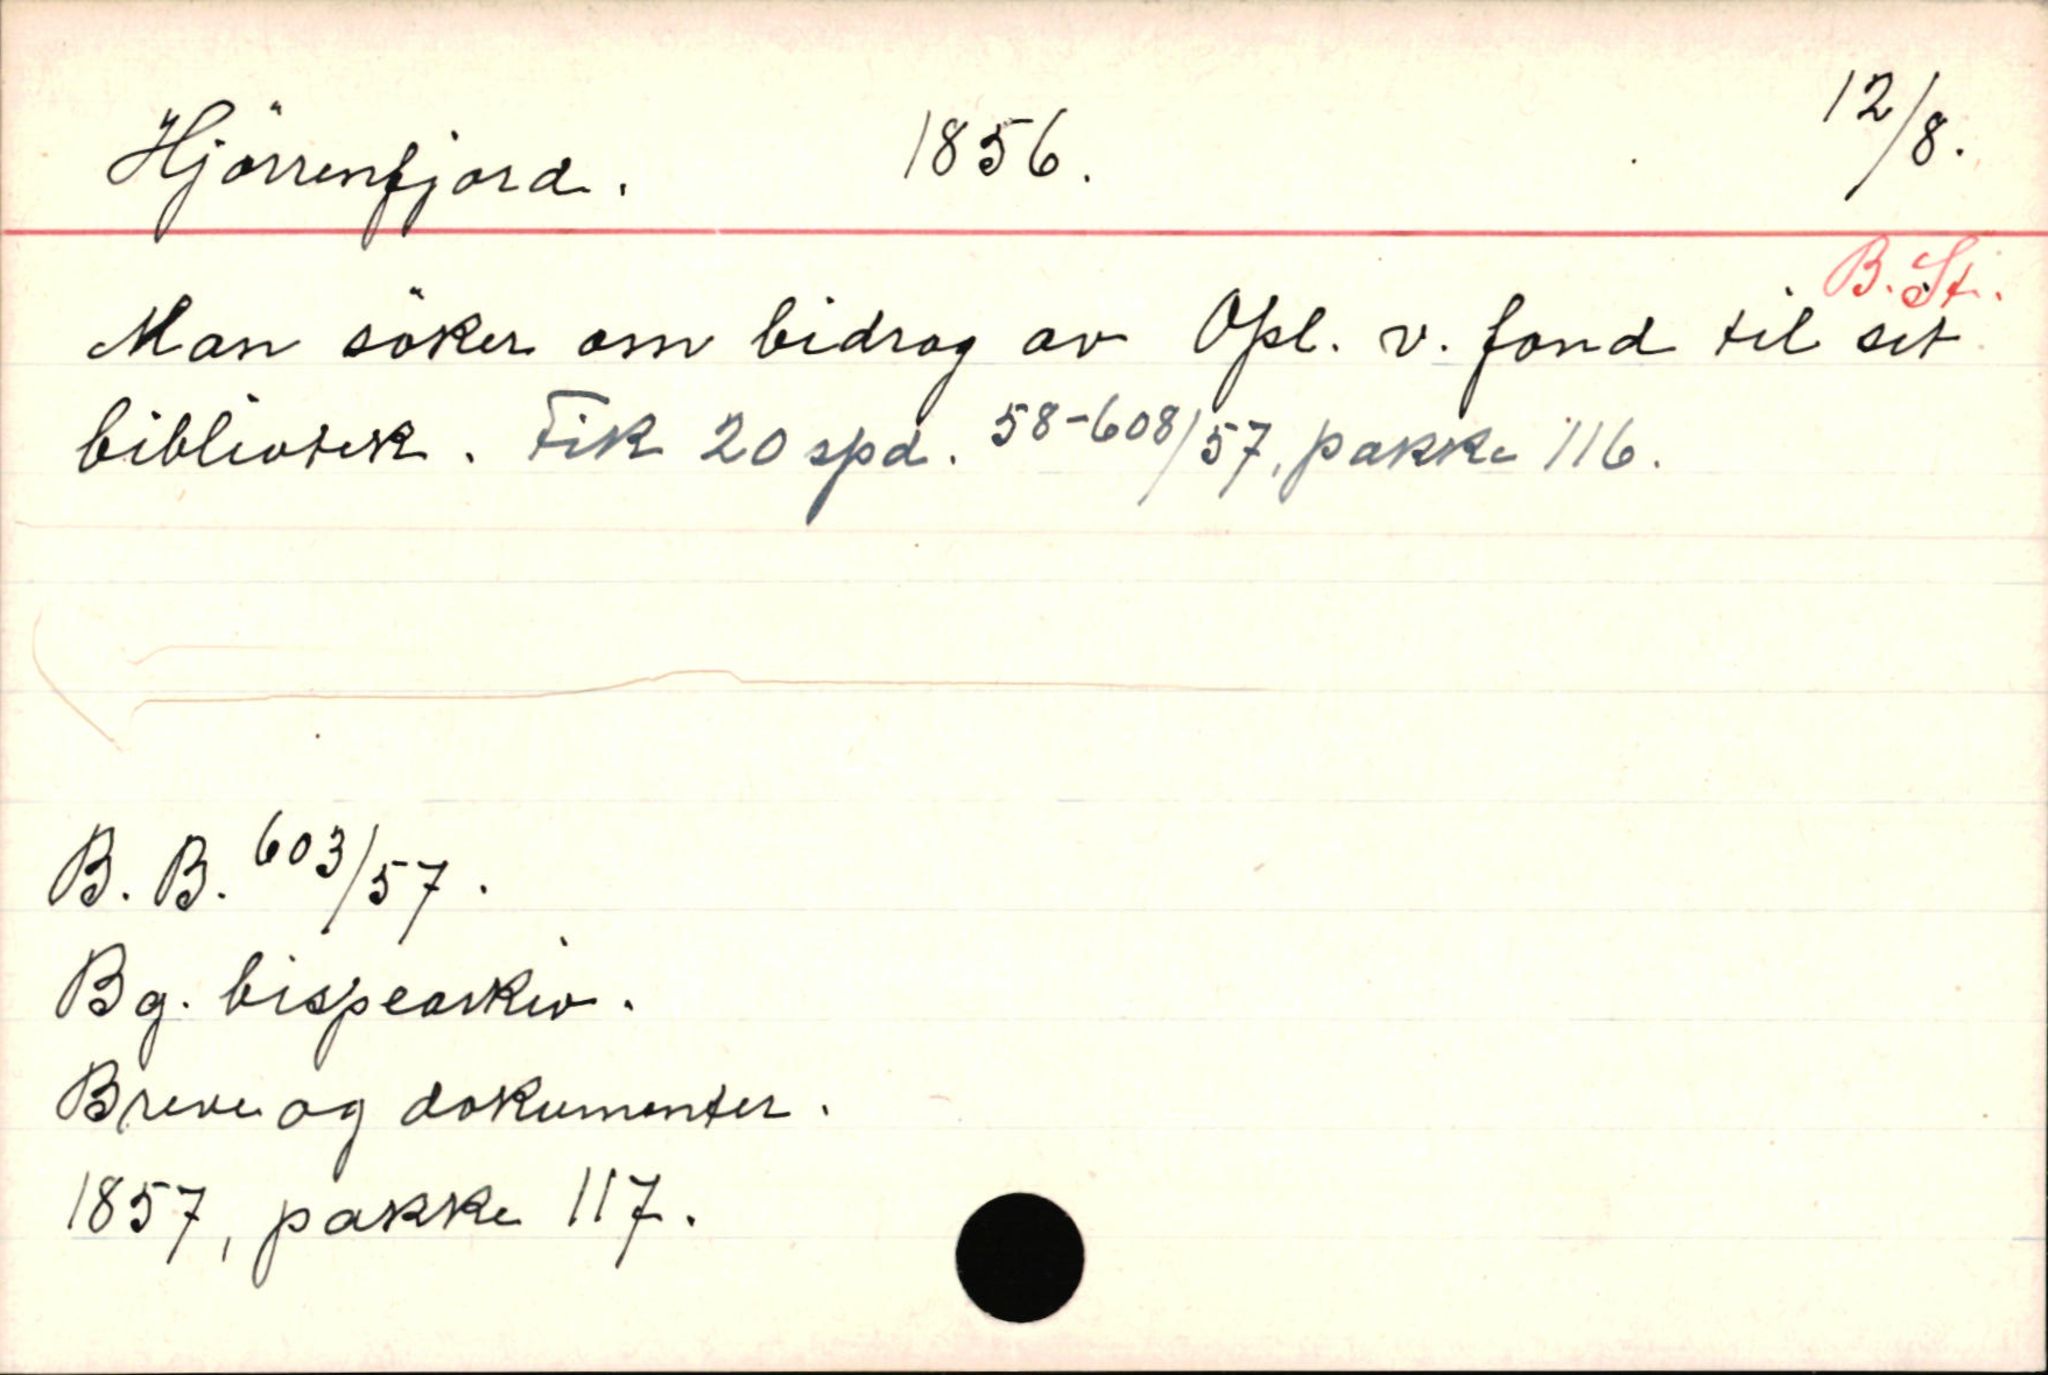 Hjörrenfjord. 1856. 12/8.
B. St.
Man söker om bidrag av Opl. v. fond til sit
bibliotek. Fik 20 spd. 58-608/57, pakke 116.
B. B. 603/57.
Bg. bispearkiv.
Breve og dokumenter.
1857, pakke 117.